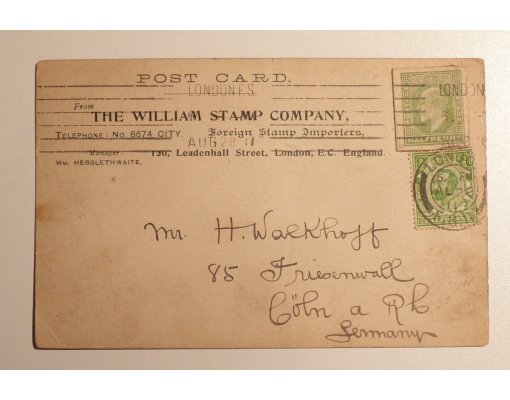 POST CARD.
LONDON F.S.
LONDON
From
THE WILLIAM STAMP COMPANY,
TELEPHONE: No. 8674, CITY. Foreign Stamp Importers,
AUG 28 11
Manager: 120, Leadenhall Street, London, E.C. England.
WM. HEBBLETHWAITE.
HALFPENNY
Mr. H. Walkhoff
85 Friesenwall
Cöln a Rh
Germany